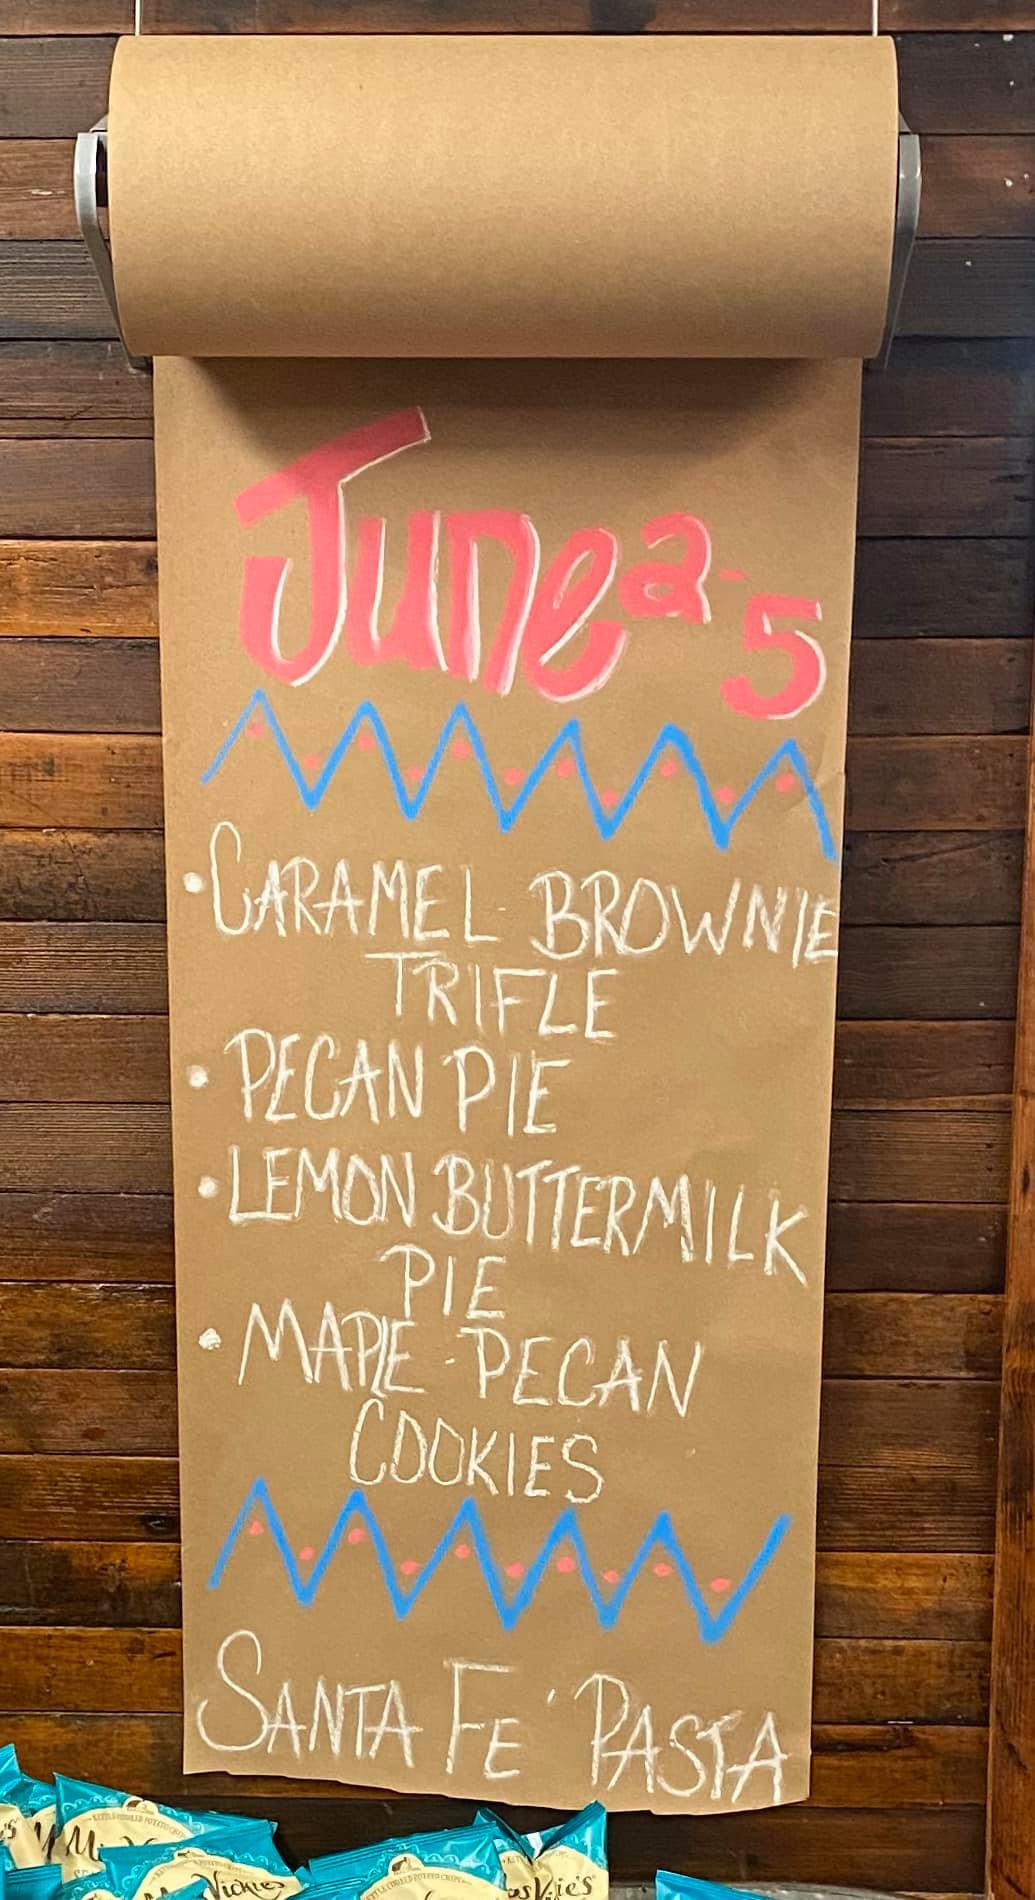 June 2-5
• CARAMEL BROWNIE
TRIFLE
• PECAN PIE
• LEMON BUTTERMILK
PIE
• MAPLE-PECAN
COOKIES
SANTA FE' PASTA
Miss Vickie's